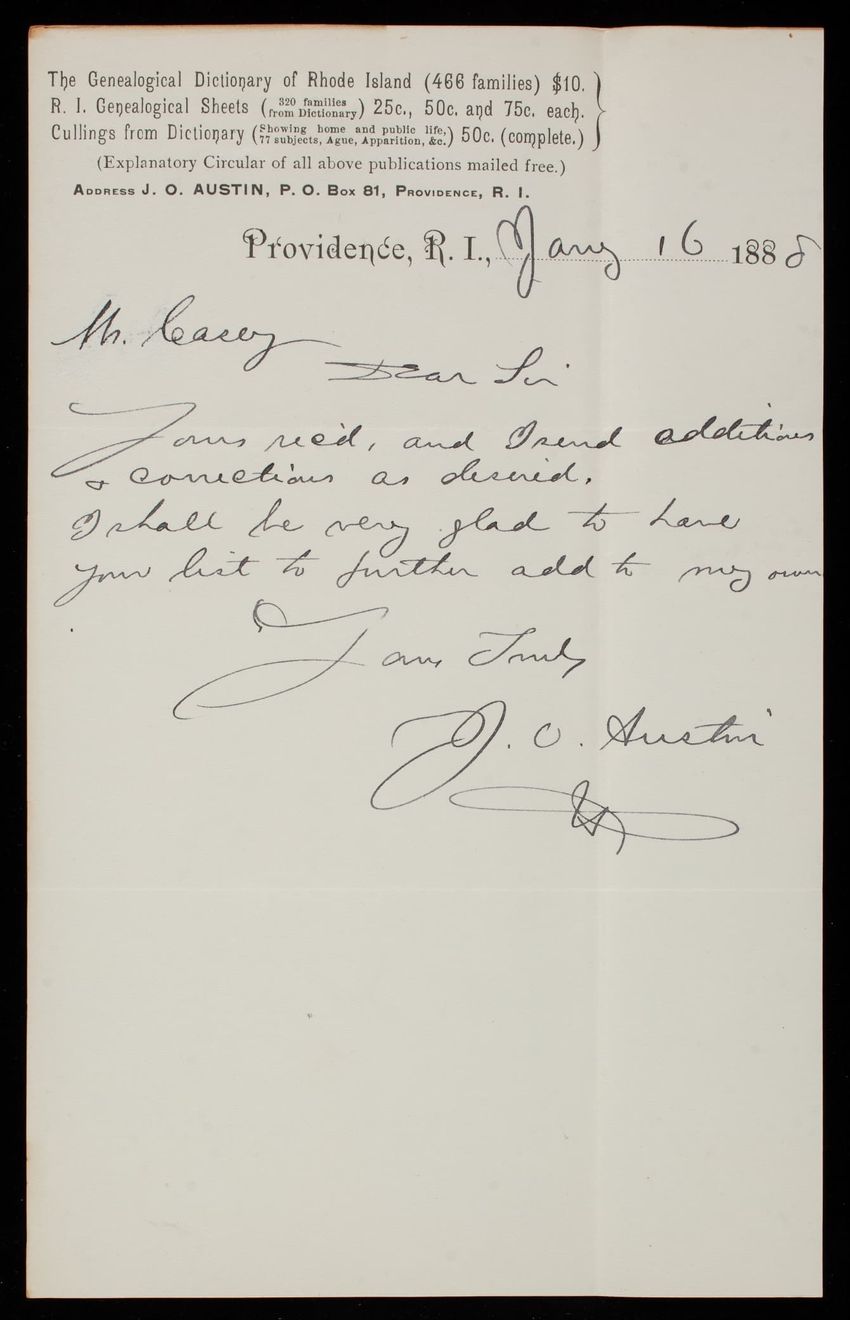 The Genealogical Dictionary of Rhode Island (466 families) $10.
R. I. Genealogical Sheets (320 families from Dictionary) 25c., 50c. and 75c. each.
Cullings from Dictionary (Showing home and public life, 77 subjects, Ague, Apparition, &c.) 50c. (complete.)
(Explanatory Circular of all above publications mailed free.)
Address J. O. AUSTIN, P. O. Box 81, Providence, R. I.
Providence, R. I., Jany 16 1888
Mr. Casey
Dear Sir
Yours rec'd, and I send additions
& corrections as desired.
I shall be very glad to have
your list to further add to my own
Yours Truly
J. O. Austin